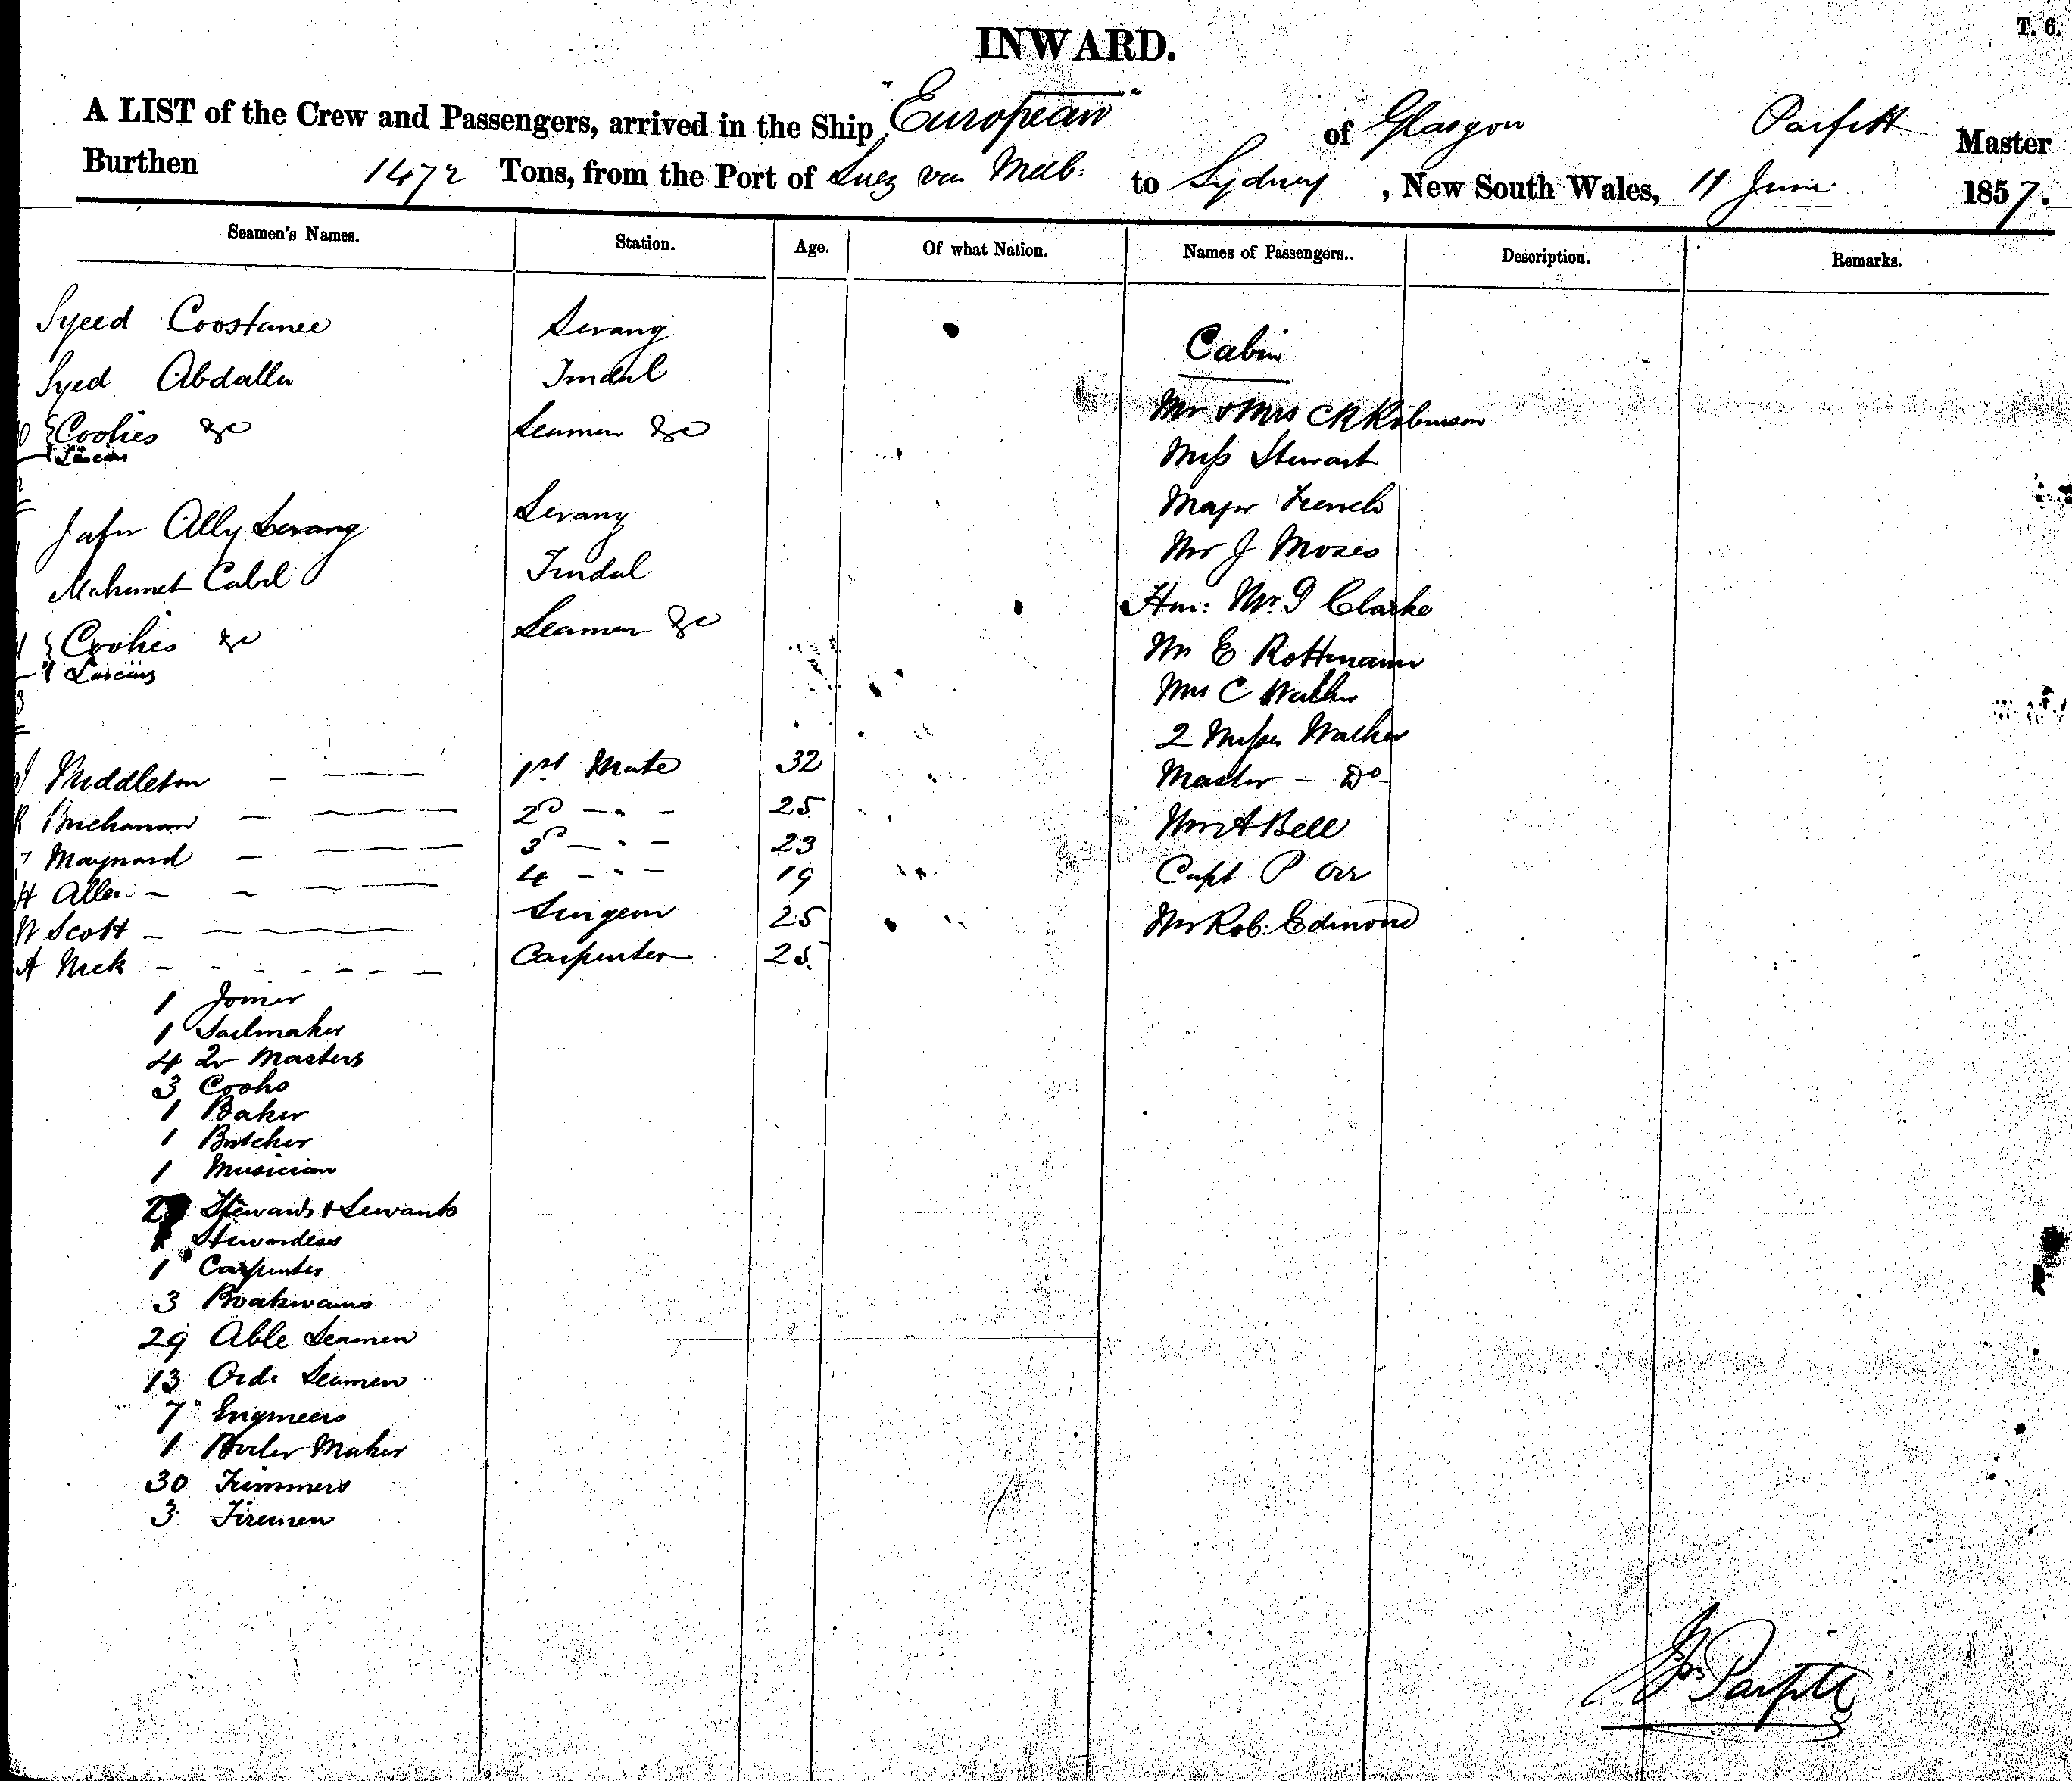 T. 6.
INWARD.
A LIST of the Crew and Passengers, arrived in the Ship "European" of Glasgow Parfitt Master
Burthen 1472 Tons, from the Port of Suez via Melb: to Sydney, New South Wales, 11 June 1857.
Seamen's Names. Station. Age. Of what Nation. Names of Passengers.. Description. Remarks.
Syeed Coostanee Serang
Syed Abdalla Tindal
Cookies &c Seamen &c
Lascars
Jafer Ally Serang Serang
Mahomet Cabil Tindal
Cookies &c Seamen &c
Lascars
J Middleton 1st Mate 32
R Buchanan 2D - " - 25
Maynard 3D - " - 23
H Allen 4 - " - 19
W Scott Surgeon 25
A Nick Carpenter 25.
1 Joiner
1 Sailmaker
4 Qr Masters
3 Cooks
1 Baker
1 Butcher
1 Musician
Stewards & Servants
1 Stewardess
1 Carpenter
3 Boatswains
29 Able Seamen
13 Ord: Seamen
7 Engineers
1 Boiler Maker
30 Trimmers
3 Firemen
Cabin
Mr & Mrs Robinson
Miss Stewart
Major French
Mr J Moses
Hon: Mr. Clarke
Mr E Rottmann
Mrs C Walker
2 Misses Walker
Master - Do -
Mr A Bell
Capt P Orr
Mr Rob: Edmond
Parfitt